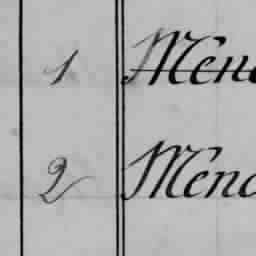 1 Mend
2 Mend